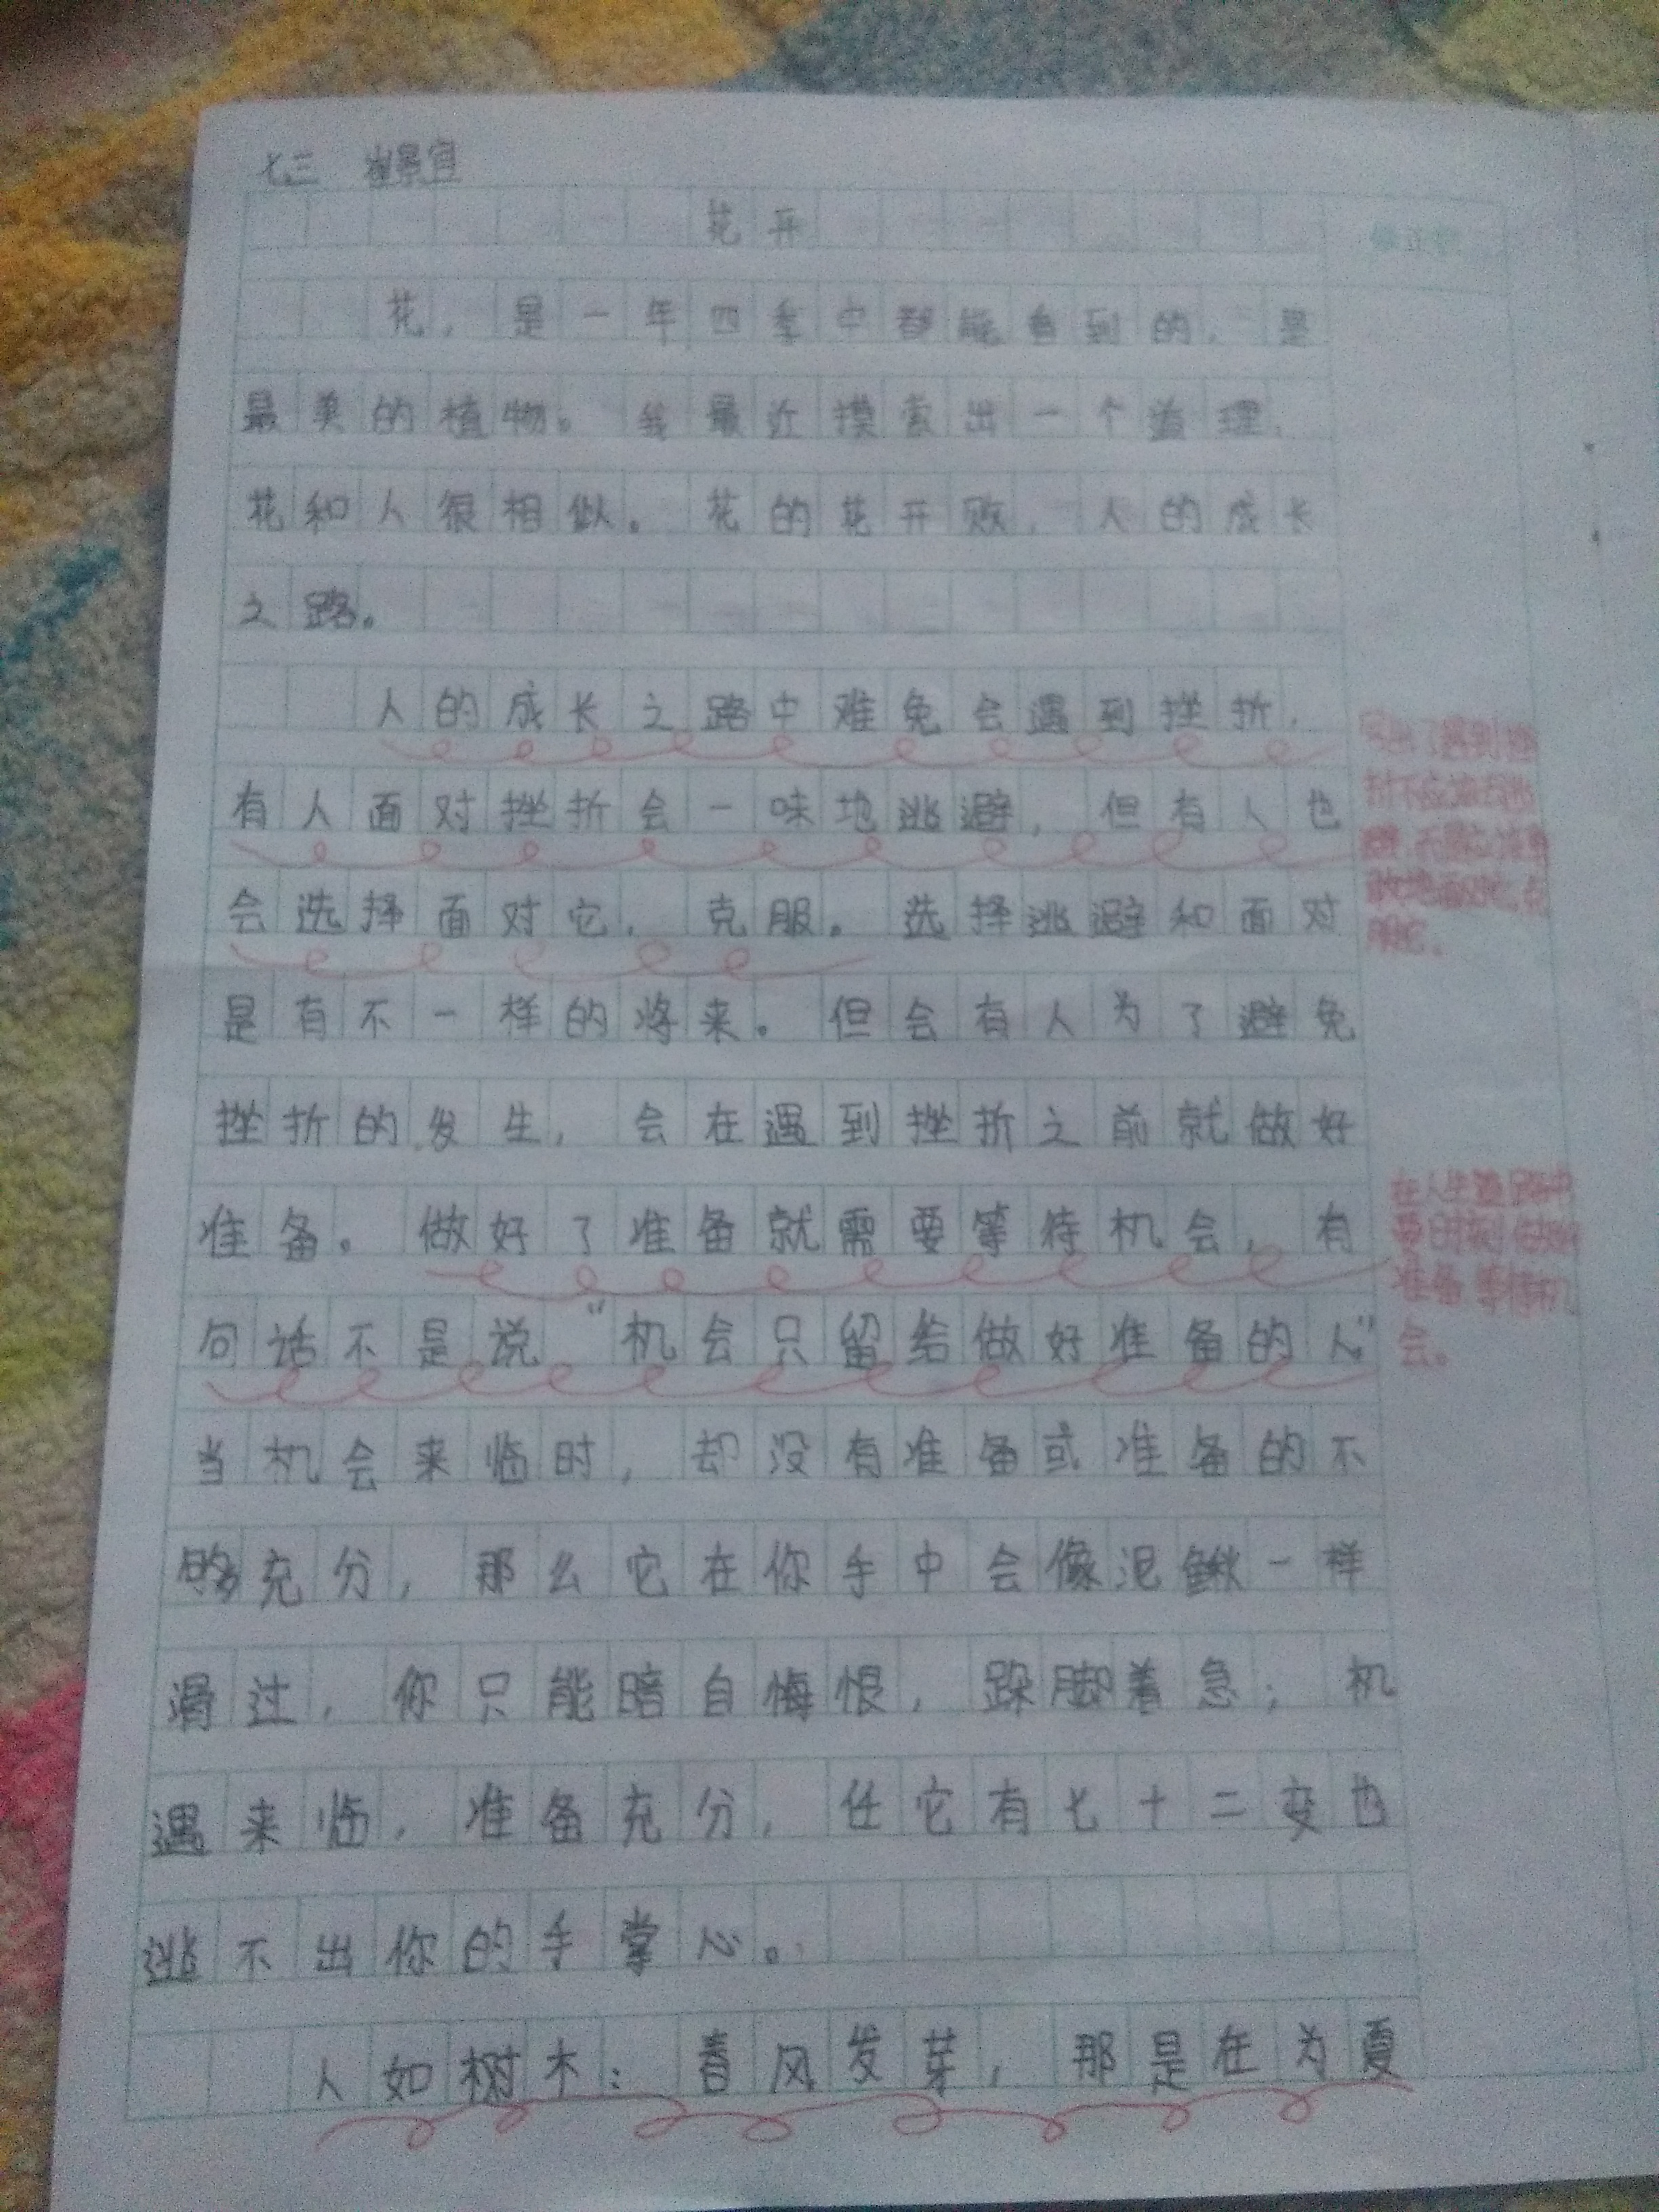 七三 崔景宜
花开
花，是一年四季中都能看到的，是
最美的植物。我最近摸索出一个道理，
花和人很相似。花的花开败，人的成长
之路。
人的成长之路中难免会遇到挫折，
有人面对挫折会一味地逃避，但有人也
会选择面对它，克服。选择逃避和面对
是有不一样的将来。但会有人为了避免
挫折的发生，会在遇到挫折之前就做好
准备。做好了准备就需要等待机会，有
句话不是说“机会只留给做好准备的人”
当机会来临时，却没有准备或准备的不
够充分，那么它在你手中会像泥鳅一样
滑过，你只能暗自悔恨，跺脚着急；机
遇来临，准备充分，任它有七十二变也
逃不出你的手掌心。
人如树木：春风发芽，那是在为夏
了遇到挫
折不应该去逃
避，而是应该勇
敢地面对，克
服它。
在人生道路中
要时刻做好
准备等待机
会。